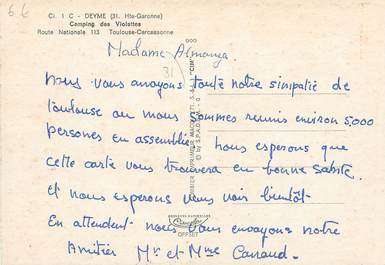 6 6
Ci. 1 C - DEYME (31. Hte-Garonne)
Camping des Violettes
Route Nationale 113 Toulouse-Carcassonne
Madame Almanza.
31
nous vous anvoyons toute notre simpatié de
toulouse ou nous sommes reunis environ 5,000
persones en assemblée. nous esperons que
cette carte vous trouvera en bonne santé.
et nous esperons vous voir bientôt.
En attendent nous vous envoyons notre
Amitiés Mr et Mme Canaud.
COMBIER IMPRIMEUR MACON
"CIM"
© by S.P.A.D.E.M.
OFFSET